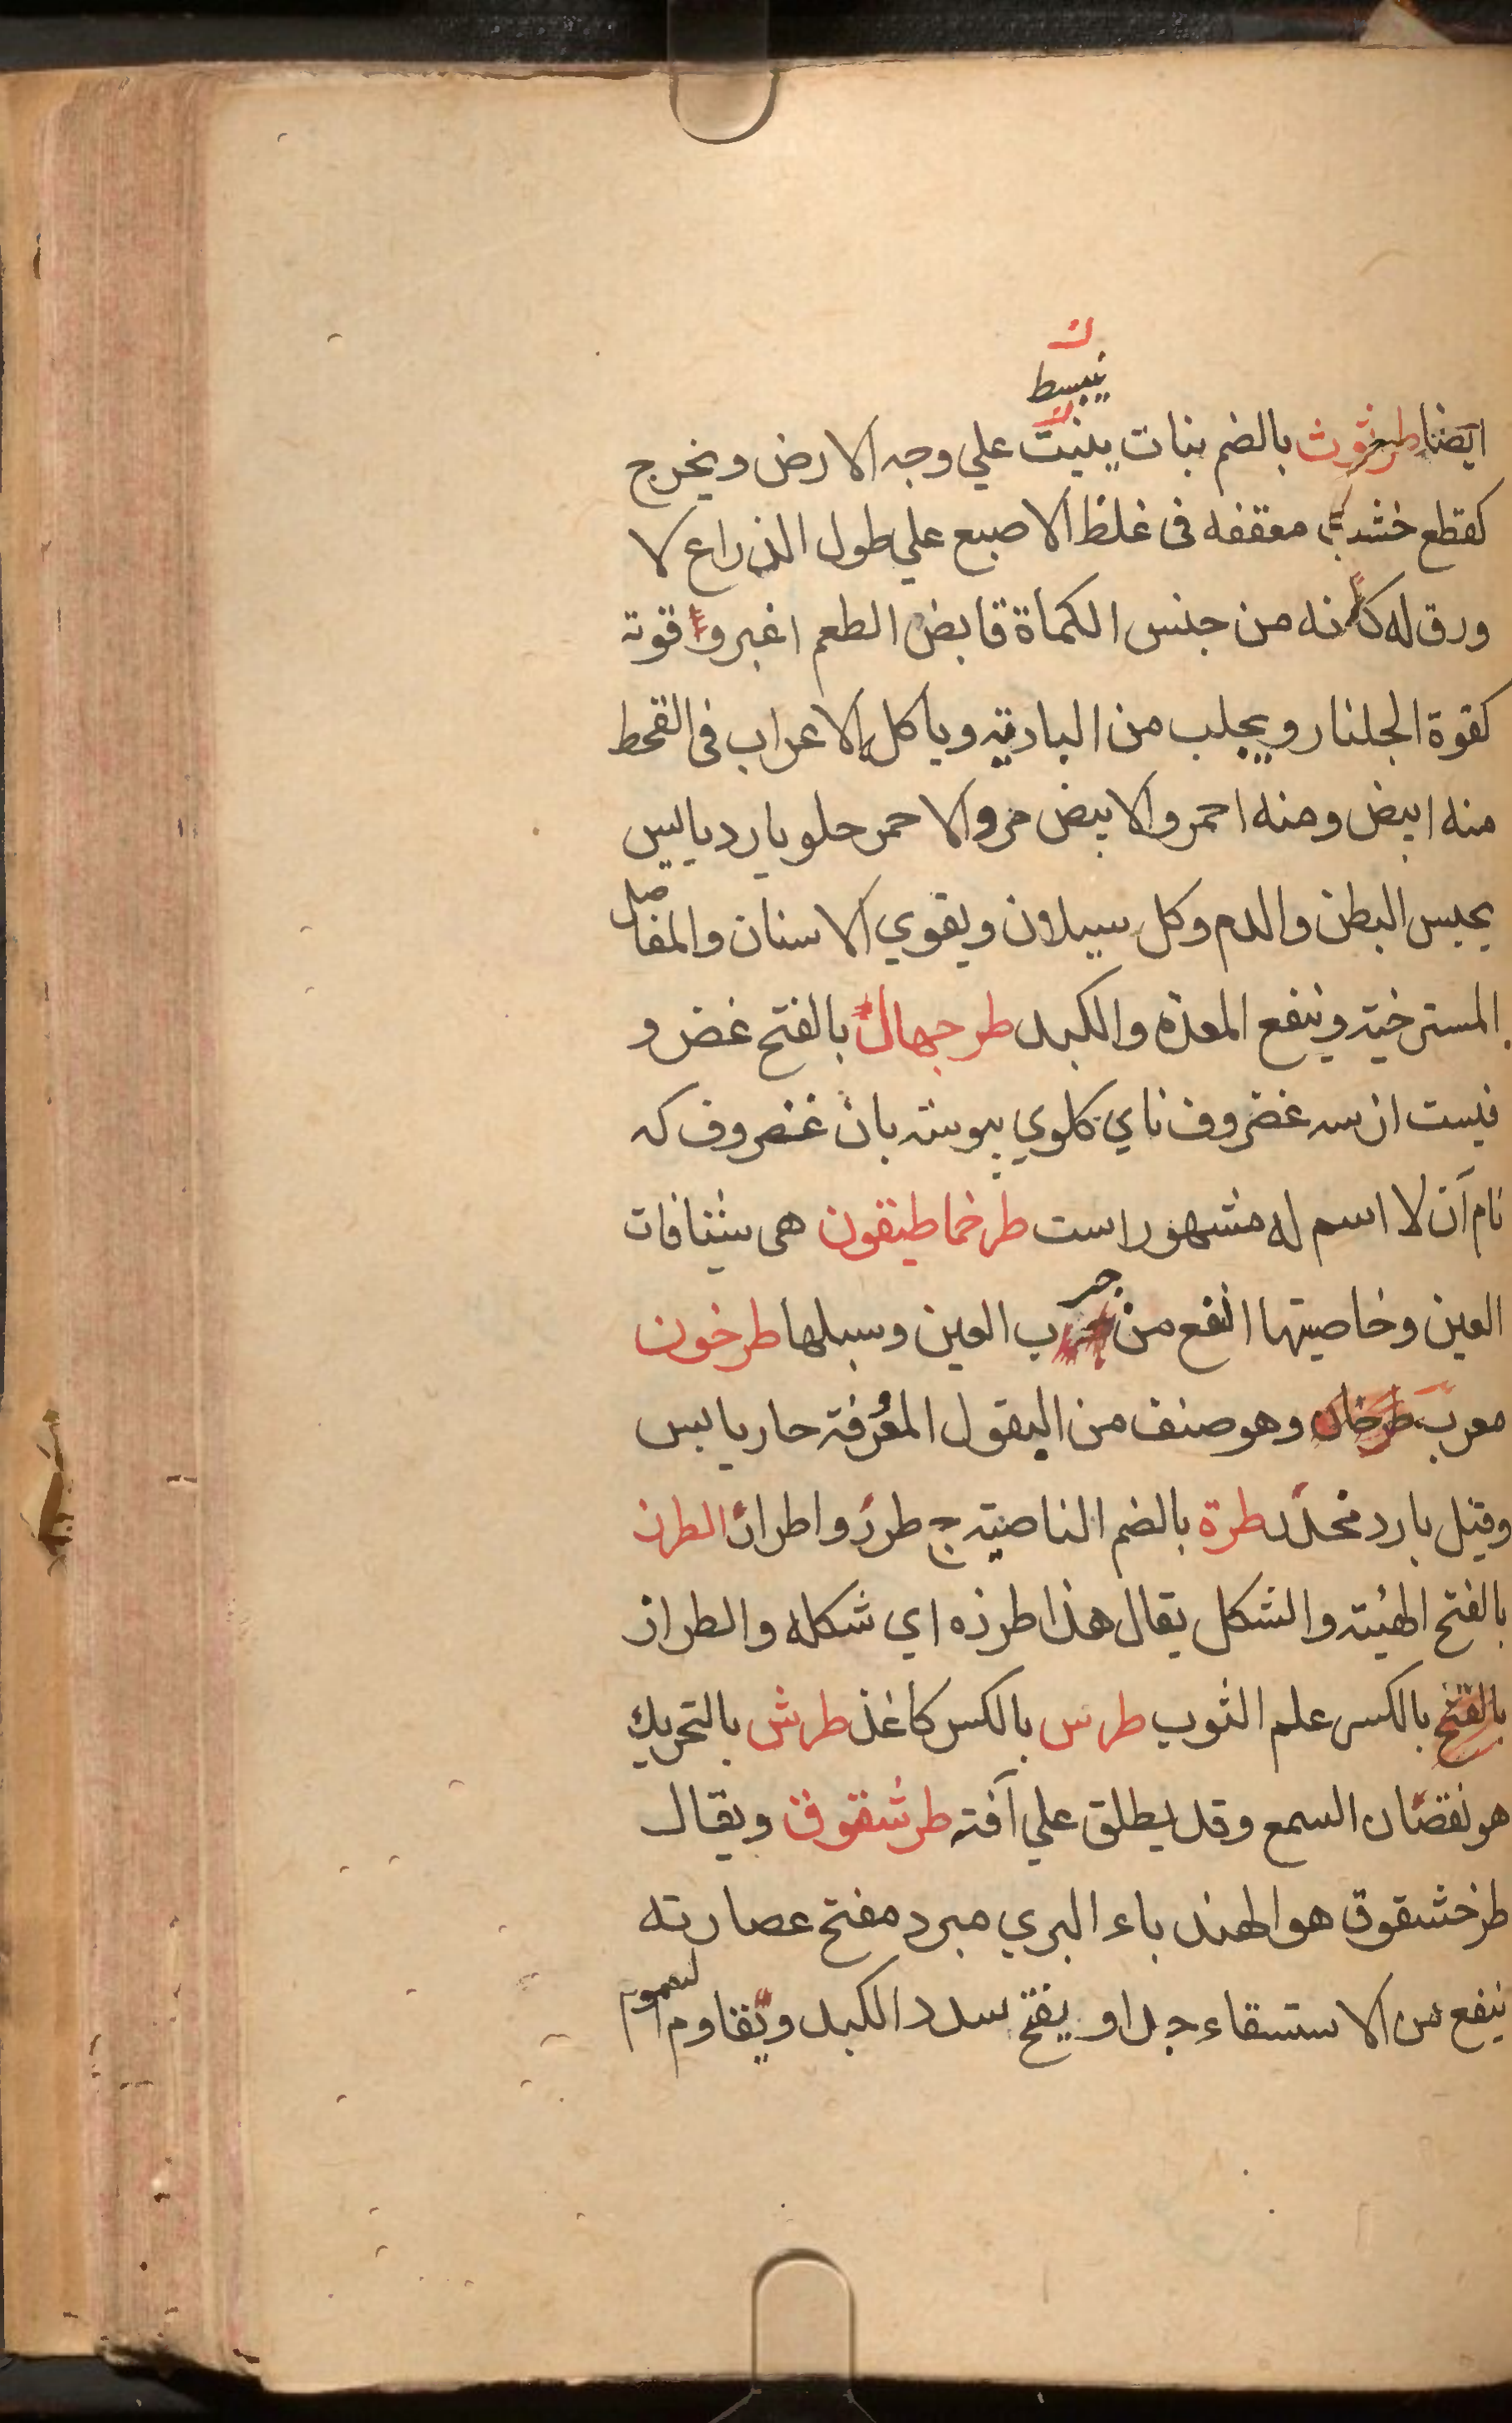 ن
ينبسط
ايضا طرثوث بالضم نبات ينبت علي وجه الارض ويخرج
كقطع خشب معقفه فى غلظ الاصبع علي طول الذراع لا
ورق له كانه من جنس الكماة قابض الطعم اغبر و قوته
كقوة الجلنار ويجلب من الباديه وياكله الاعراب فى القحط
منه ابيض ومنه احمر والابيض مر والاحمر حلو بارد يابس
يحبس البطن والدم وكل سيلان ويقوي الاسنان والمفاصل
المسترخيه وينفع المعده والكبد طرجهال بالفتح غضرو
فيست از سه غضروف ناي كلوي پيوسته بان غضروف كه
نام آن لا اسم له مشهور است طرخماطيقون هى شيافات
العين وخاصيتها النفع من جرب العين وسبلها طرخون
معرب طرخان وهو صنف من البقول المعرفة حار يابس
وقيل بارد مخدّر طرة بالضم الناصية ج طرر واطرار الطرز
بالفتح الهيئة والشكل يقال هذا طرزه اي شكله والطراز
بالفتح بالكسر علم الثوب طرس بالكسر كاغذ طرش بالتحريك
هو نقصان السمع وقد يطلق علي آفته طرشقوق ويقال
طرخشقوق هو الهندباء البري مبرد مفتح عصارته
ينفع من الاستسقاء جدا ويفتح سدد الكبد ويقاوم السموم